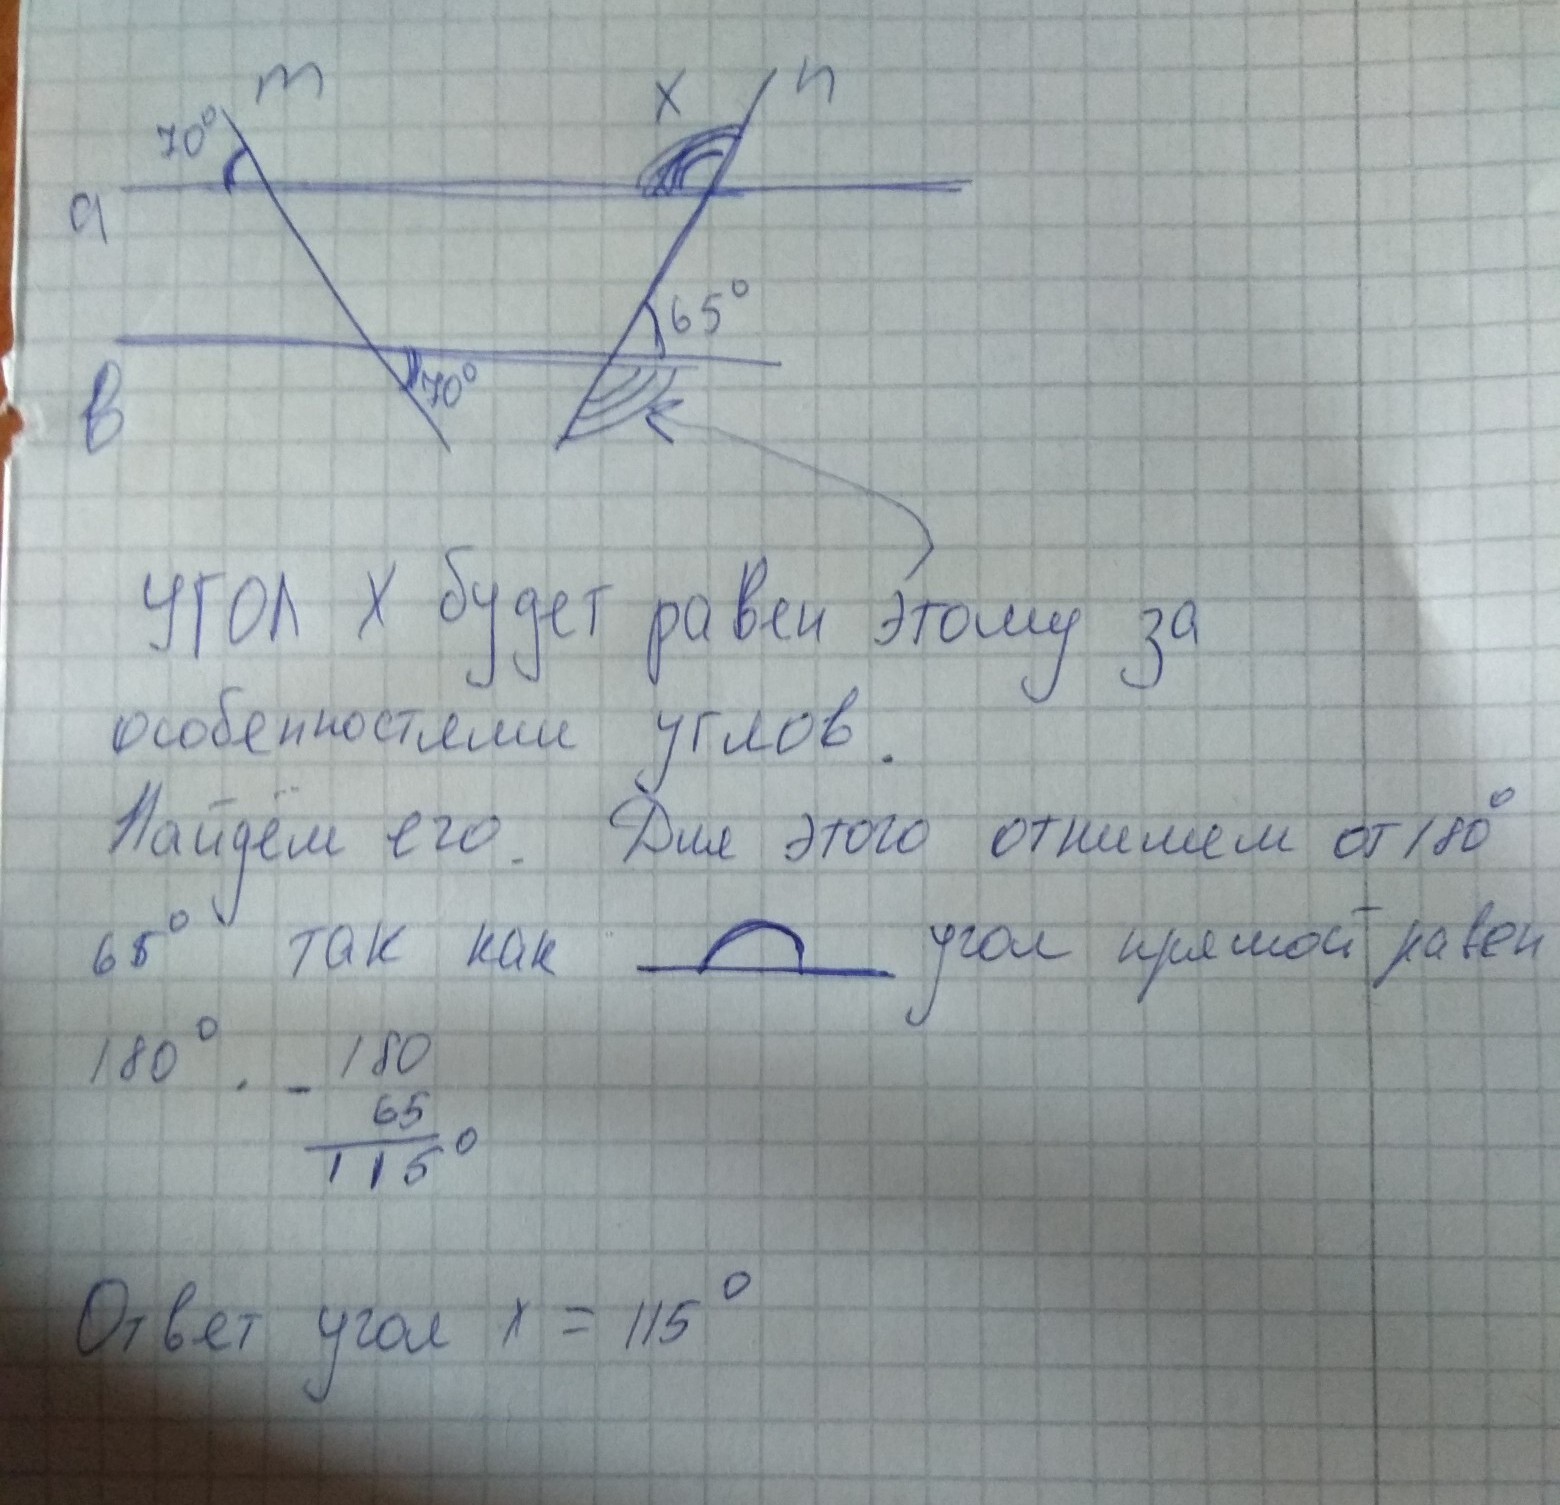 m
x
n
70°
a
65°
в
70°
угол х будет равен этому за
особенностями углов.
Найдём его. Для этого отнимем от 180°
65° так как угол прямой равен
180°. - 180
65
115°
Ответ угол х = 115°